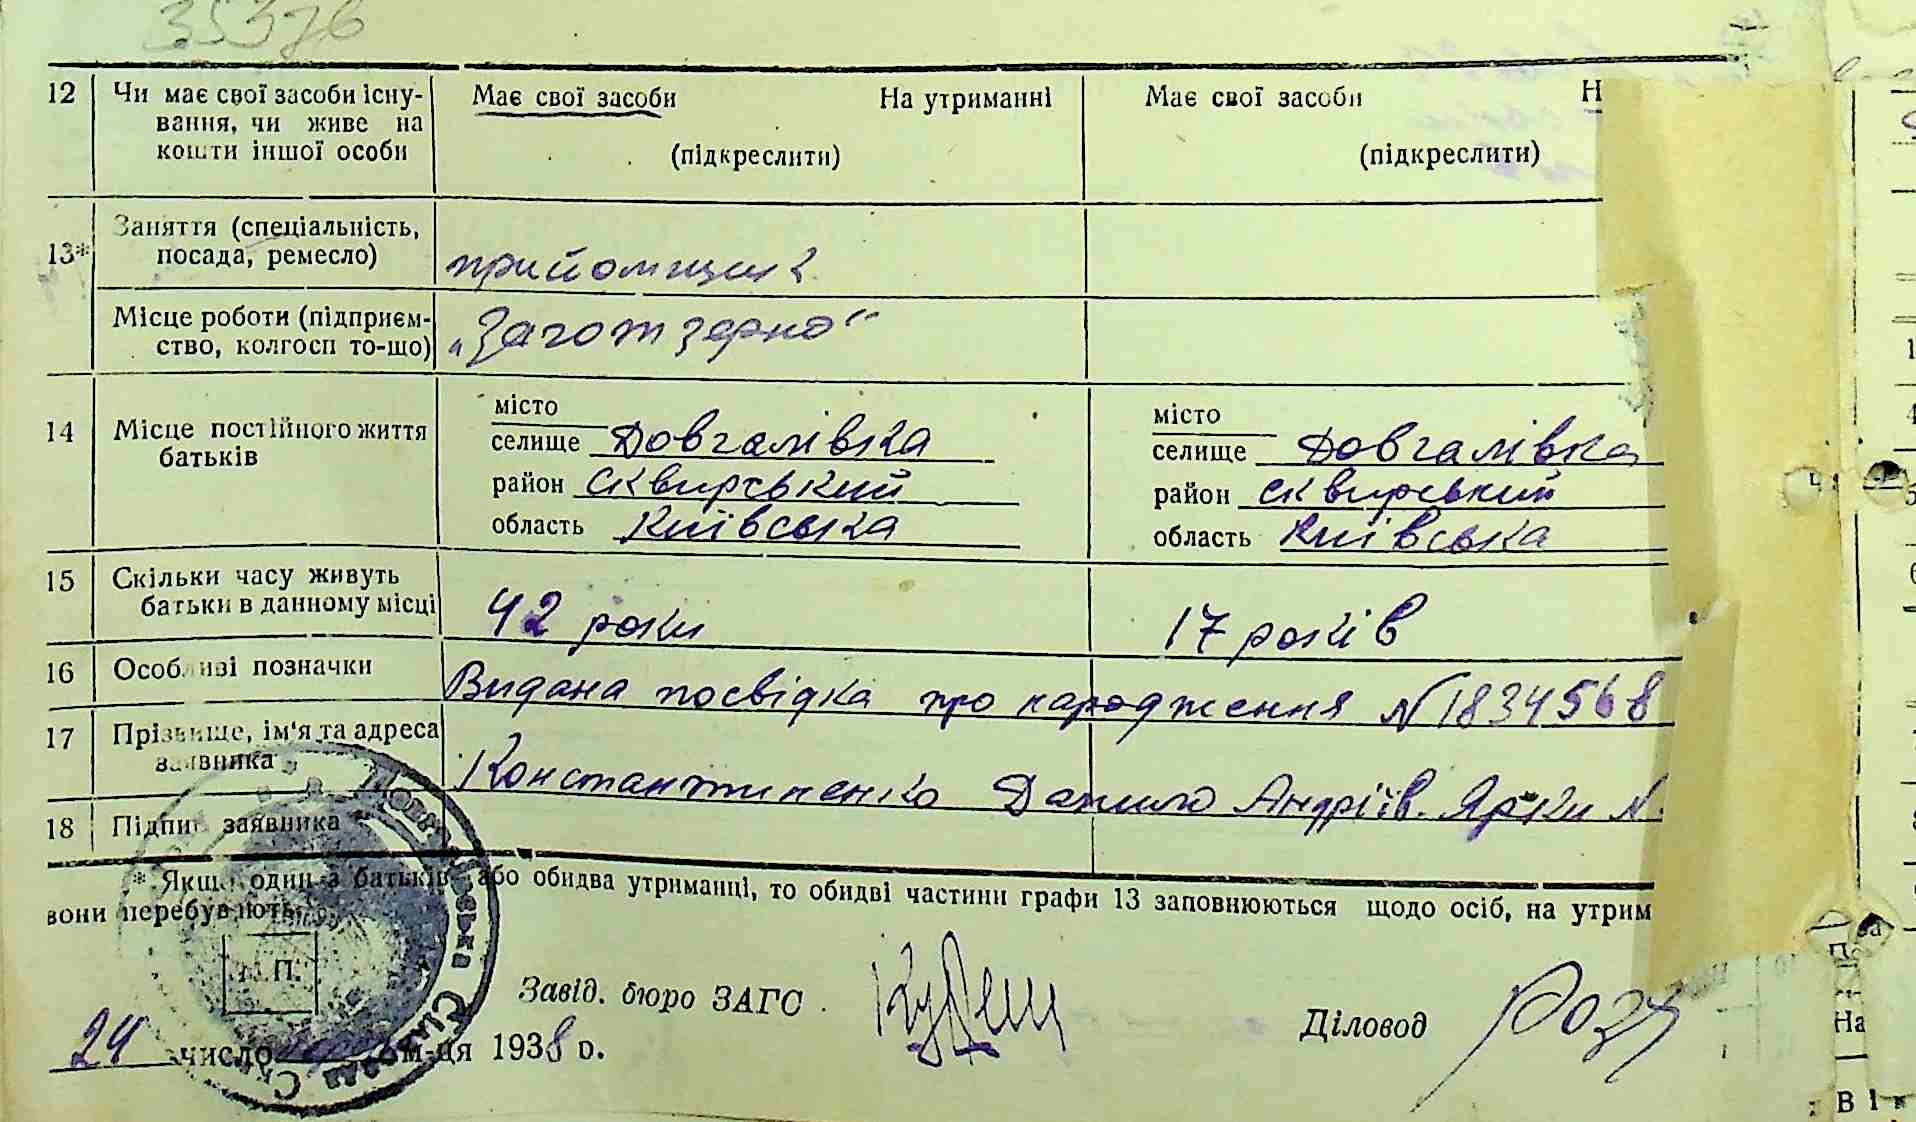 35376
12 Чи має свої засоби існу- Має свої засоби На утриманні Має свої засоби Н
вання, чи живе на
кошти іншої особи (підкреслити) (підкреслити)
13* Заняття (спеціальність,
посада, ремесло) прийомщик
Місце роботи (підприєм-
ство, колгосп то-що) „Заготзерно“
місто місто
14 Місце постійного життя селище Довгалівка селище Довгалівка
батьків район Сквирський район Сквирський
область Київська область Київська
15 Скільки часу живуть
батьки в данному місці 42 роки 17 років
16 Особливі позначки Видана посвідка про народження № 1834568
17 Прізвище, ім'я та адреса
заявника Константиненко Данило Андріїв. Ярки N.
18 Підпис заявника
* Якщо один з батьків або обидва утриманці, то обидві частини графи 13 заповнюються щодо осіб, на утрим
вони перебувають.
М. П.
Завід. бюро ЗАГС
Діловод
24 число м-ця 1938 р.